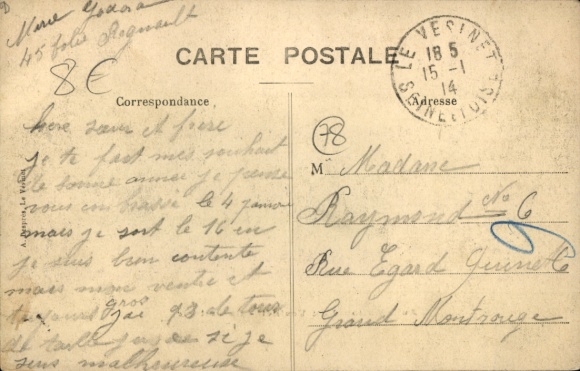 Marie Godora
45 folie Regnault
8€
CARTE POSTALE
LE VESINET
18 5
15 -1
14
SEINE ET OISE
Correspondance
Adresse
78
A. Le Vésinet
chere sœur et frère
je te fait mes souhait
de bonne année je pense
vous le 4 janvier
mais je sort le 16 en
je suis bien contente
mais mon ventre et
toujours gros j'ai 93 de tour
de taille si je
suis malheureuse
M Madame
Raymond No 6
Rue Egard Quinet
Grand Montrouge